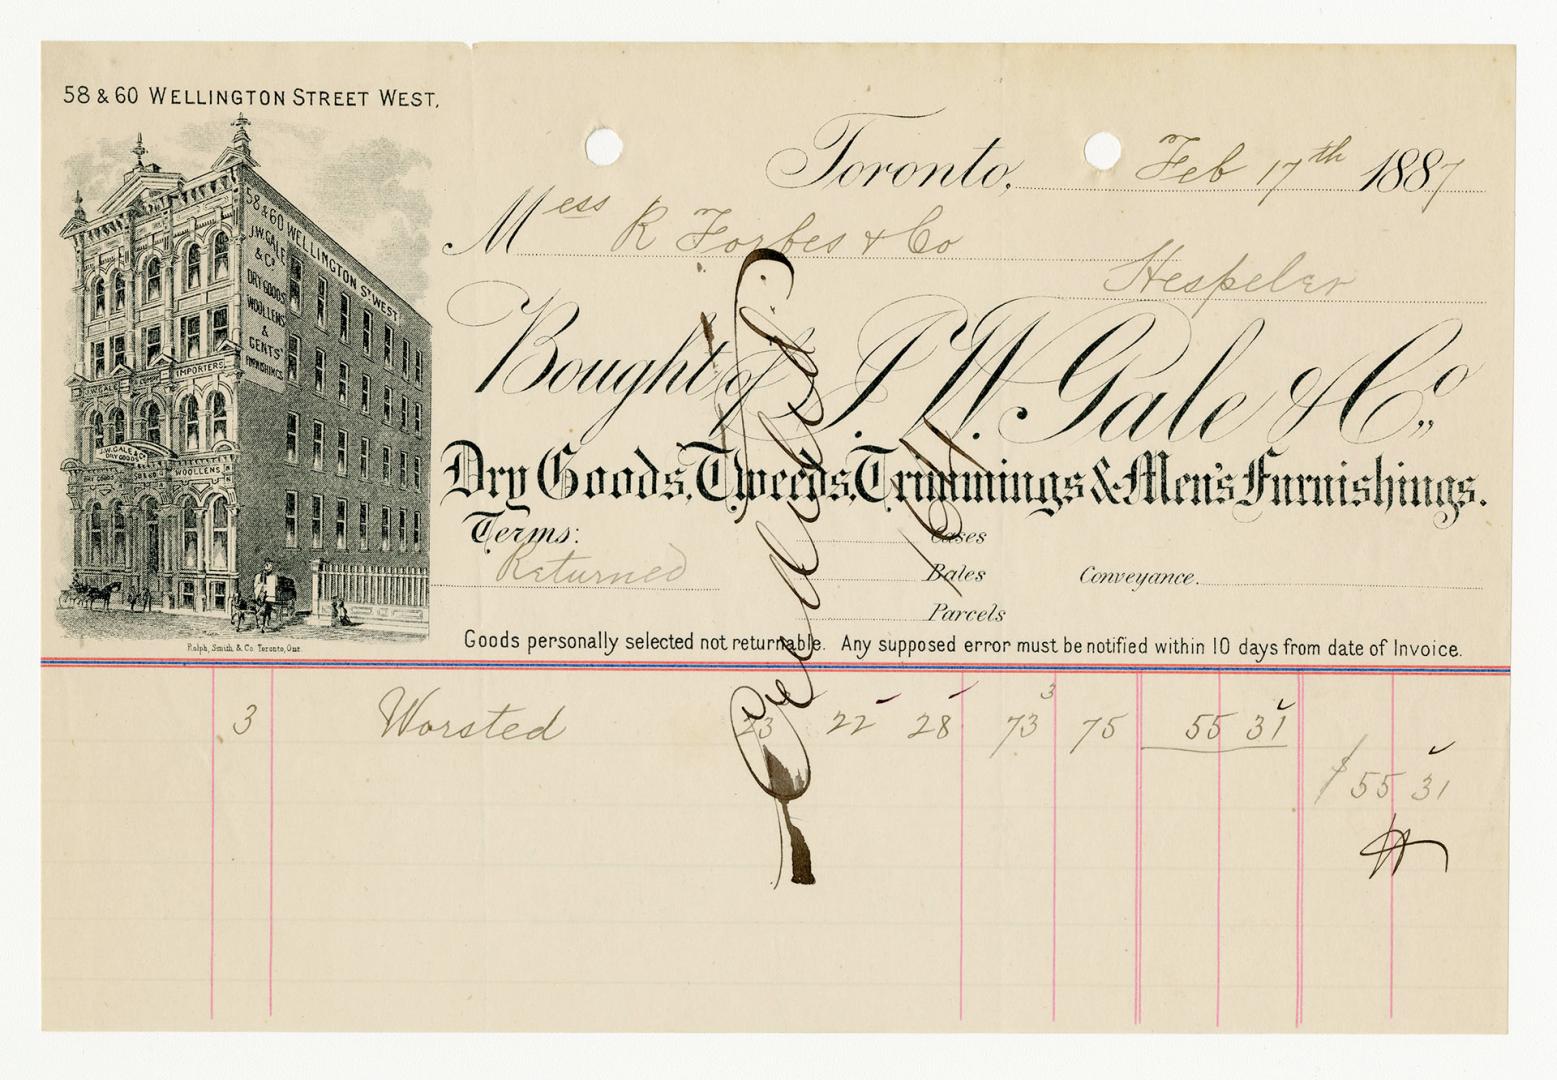 58 & 60 WELLINGTON STREET WEST.
Toronto, Feb 17th 1887
Mess R Forbes & Co
Hespeler
58 & 60 WELLINGTON ST WEST
J.W. GALE
& Co
DRY GOODS
WOOLLENS
&
GENTS'
FURNISHINGS
IMPORTERS
J.W. GALE
J.W. GALE & Co
DRY GOODS
WOOLLENS
DRY GOODS
58 & 60
Bought of J. W. Gale & Co.,
Dry Goods, Tweeds, Trimmings & Men's Furnishings.
Terms: Cases
Returned Bales Conveyance.
Parcels
Goods personally selected not returnable. Any supposed error must be notified within 10 days from date of Invoice.
Rolph, Smith & Co. Toronto, Ont.
3 Worsted 23 22 28 73 3 75 55 31
$55 31